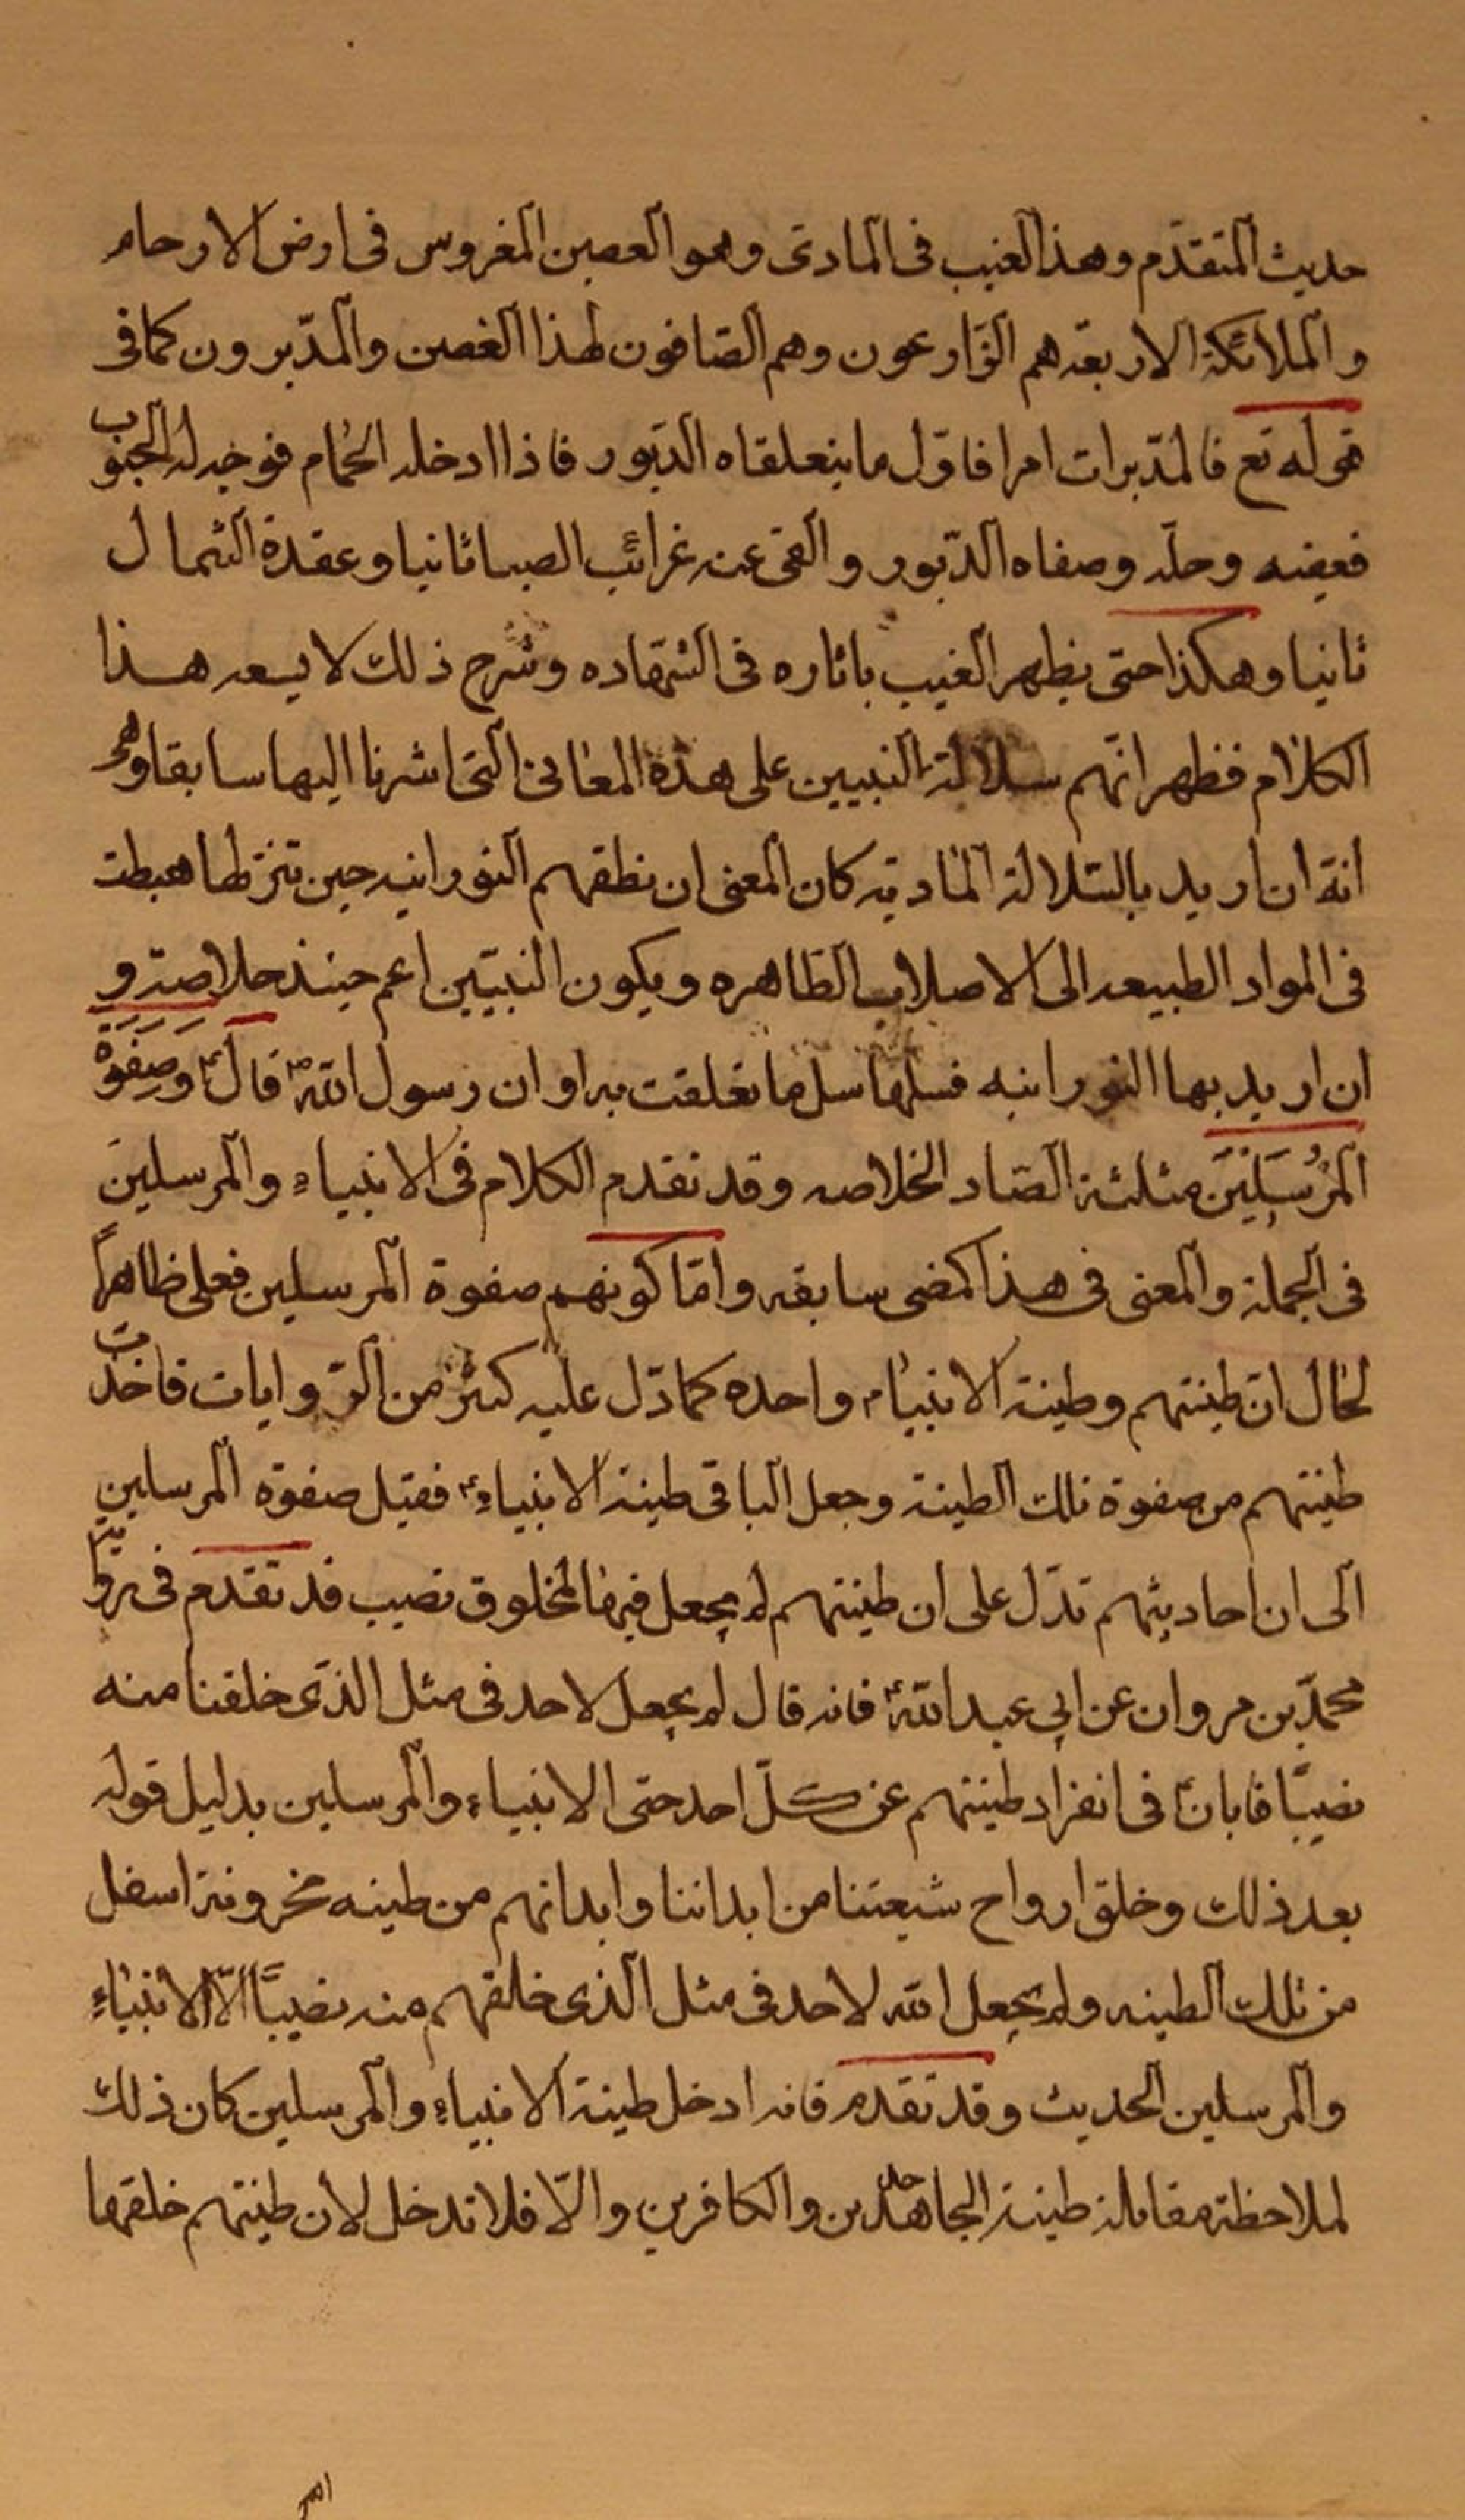 حديث المتقدّم وهذا الغيب فى المادى وهو العصين المغروس فى ارض الارحام
والملائكة الاربعة هم الزّارعون وهم الصّافون لهذا الغصن والمدّبرون كما فى
قوله تع فالمدّبرات امرا فاوّل ما يتعلقاه الدّبور فاذا ادخله الحمام فوخد له الجنوب
فعفنه وحلّه وصفاه الدّبور والقى عنه غرائب الصبا ثانيا وعقدة الشمال
ثانيا وهكذا حتى يظهر الغيب باثاره فى الشهاده وشرح ذلك لا يسعه هذا
الكلام فظهر انّهم سلالة النبيين على هذه المعانى التى اشرنا اليها سابقا وهو
انة ان اريد بالسّلالة المادية كان المعنى ان نطفهم النورانيه حين تنزلها هبطت
فى المواد الطبيعه الى الاصلاب الظاهره ويكون النبيّين اعم حينذ خلاصة و
ان اريد بها النورانيه فسلها سل ما تعلقت به او ان رسول اللّه ص قال ع وَصَفْوَةَ
المُرْسَلينَ مثلثة الصّاد الخلاصه وقد تقدم الكلام فى الانبياء والمرسلين
فى الجملة والمعنى فى هذا كمضى سابقه وامّا كونهم صفوة المرسلين فعلى ظاهراً
لحال انّ طينتهم وطينة الانبياء واحده كما دّل عليه كثير من الرّوايات فاخذت
طينتهم من صفوة تلك الطينة وجعل الباقى طينة الانبياء ع فقيل صفوة المرسلين
الى ان احاديثهم تدّل على ان طينتهم لم يجعل فيها لمخلوق نصيب قد تقدم فى رواية
محمدّ بن مروان عن ابي عبد اللّه ع فانه قال لم يجعل لاحد فى مثل الذى خلقنا منه
نصيبًا فابان ع فى انفراد طينتهم عن كلّ احد حتى الانبياء والمرسلين بدليل قوله
بعد ذلك وخلق ارواح شيعتنا من ابداننا وابدانهم من طينه مخزونة اسفل
من تلك الطينه ولم يجعل اللّه لاحد فى مثل الذى خلقهم منه نصيبًا الّا الانبياء
والمرسلين الحديث وقد تقدم فانه ادخل طينة الانبياء والمرسلين كان ذلك
لملاحظة مقابلة طينة الجاحدين والكافرين والّا فلا تدخل لأن طينتهم خلقها